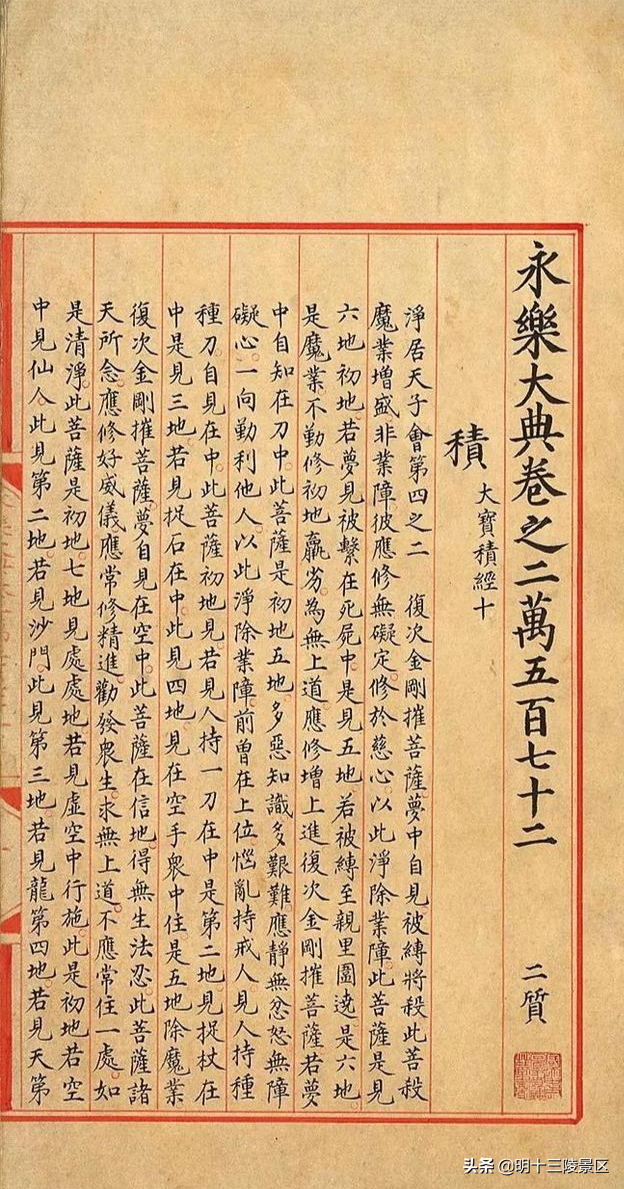 永樂大典卷之二萬五百七十二 二質
積 大寶積經十
淨居天子會第四之二 復次金剛摧菩薩夢中自見被縛將殺此菩殺
魔業增盛非業障彼應修無礙定修於慈心以此淨除業障此菩薩是見
六地初地若夢見被繫在死屍中是見五地若被縛至親里圍遶是六地
是魔業不勤修初地羸劣為無上道應修增上進復次金剛摧菩薩若夢
中自知在刀中此菩薩是初地五地多惡知識多艱難應靜無忿怒無障
礙心一向勤利他人以此淨除業障前曾在上位惱亂持戒人見人持種
種刀自見在中此菩薩初地見若見人持一刀在中是第二地見捉杖在
中是見三地若見捉石在中此見四地見在空手衆中住是五地除魔業
復次金剛摧菩薩夢自見在空中此菩薩在信地得無生法忍此菩薩諸
天所念應修好威儀應常修精進勸發衆生求無上道不應常住一處如
是清淨此菩薩是初地七地見處處地若見虛空中行施此是初地若空
中見仙人此見第二地若見沙門此見第三地若見龍第四地若見天第
头条 @明十三陵景区